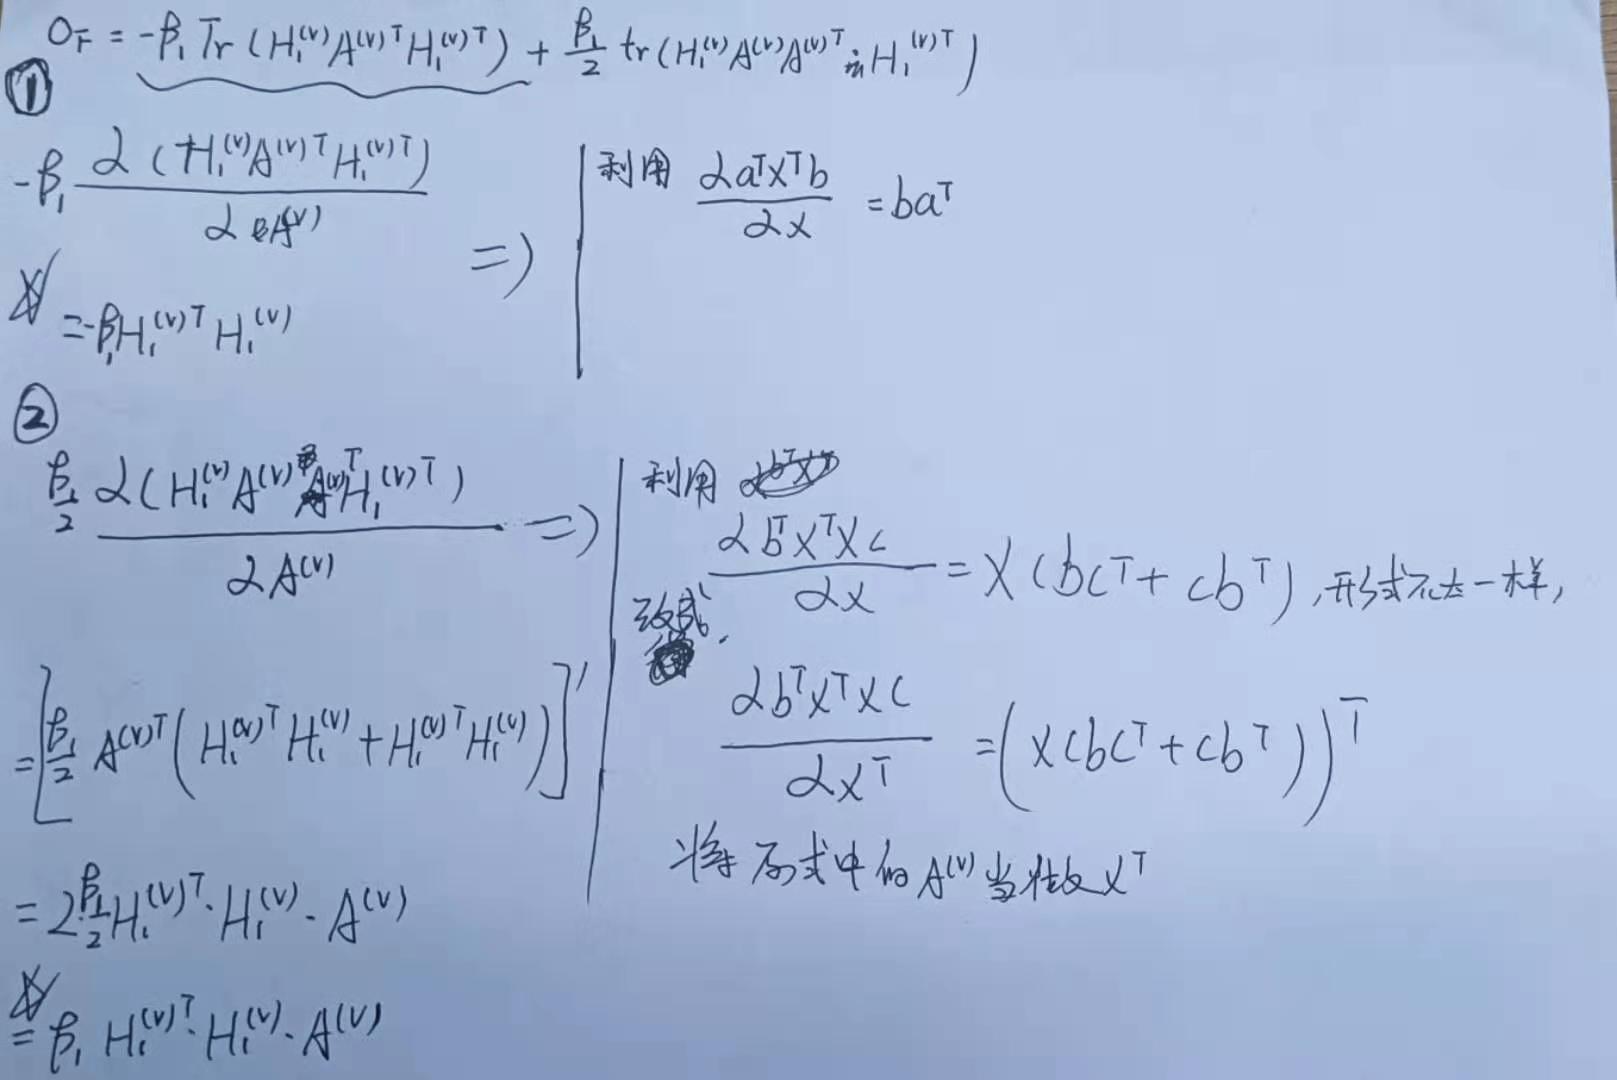 O_F = -β₁ Tr (H₁^(v) A^(v)T H₁^(v)T) + β₁/2 tr (H₁^(v) A^(v) A^(v)T H₁^(v)T)
①
-β₁ ∂(H₁^(v) A^(v)T H₁^(v)T) / ∂A^(v) =>
= -β₁ H₁^(v)T H₁^(v)
利用 ∂a^T X^T b / ∂X = ba^T
②
β₁/2 ∂(H₁^(v) A^(v) A^(v)T H₁^(v)T) / ∂A^(v) =>
= [β₁/2 A^(v)T (H₁^(v)T H₁^(v) + H₁^(v)T H₁^(v))]'
= 2·β₁/2 H₁^(v)T · H₁^(v) · A^(v)
= β₁ H₁^(v)T · H₁^(v) · A^(v)
利用
∂b^T X^T X c / ∂X = X (bc^T + cb^T), 形式不太一样,
改成
∂b^T X^T X c / ∂X^T = (X(bc^T + cb^T))^T
将原式中的 A^(v) 当做 X^T